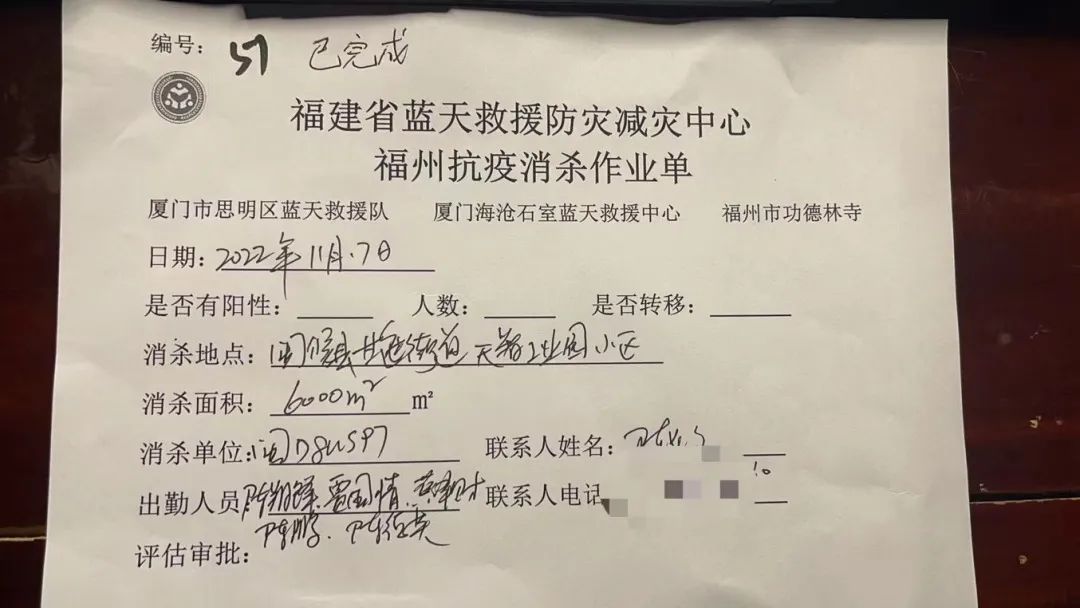 编号: 57 已完成
福建省蓝天救援防灾减灾中心
福州抗疫消杀作业单
厦门市思明区蓝天救援队 厦门海沧石室蓝天救援中心 福州市功德林寺
日期: 2022年11月.7日
是否有阳性: 人数: 是否转移:
消杀地点: 闽侯县甘蔗街道 工业园小区
消杀面积: 6000m² m²
消杀单位: 闽 联系人姓名:
出勤人员 雷国情、 联系人电话
陈鹏、陈
评估审批: